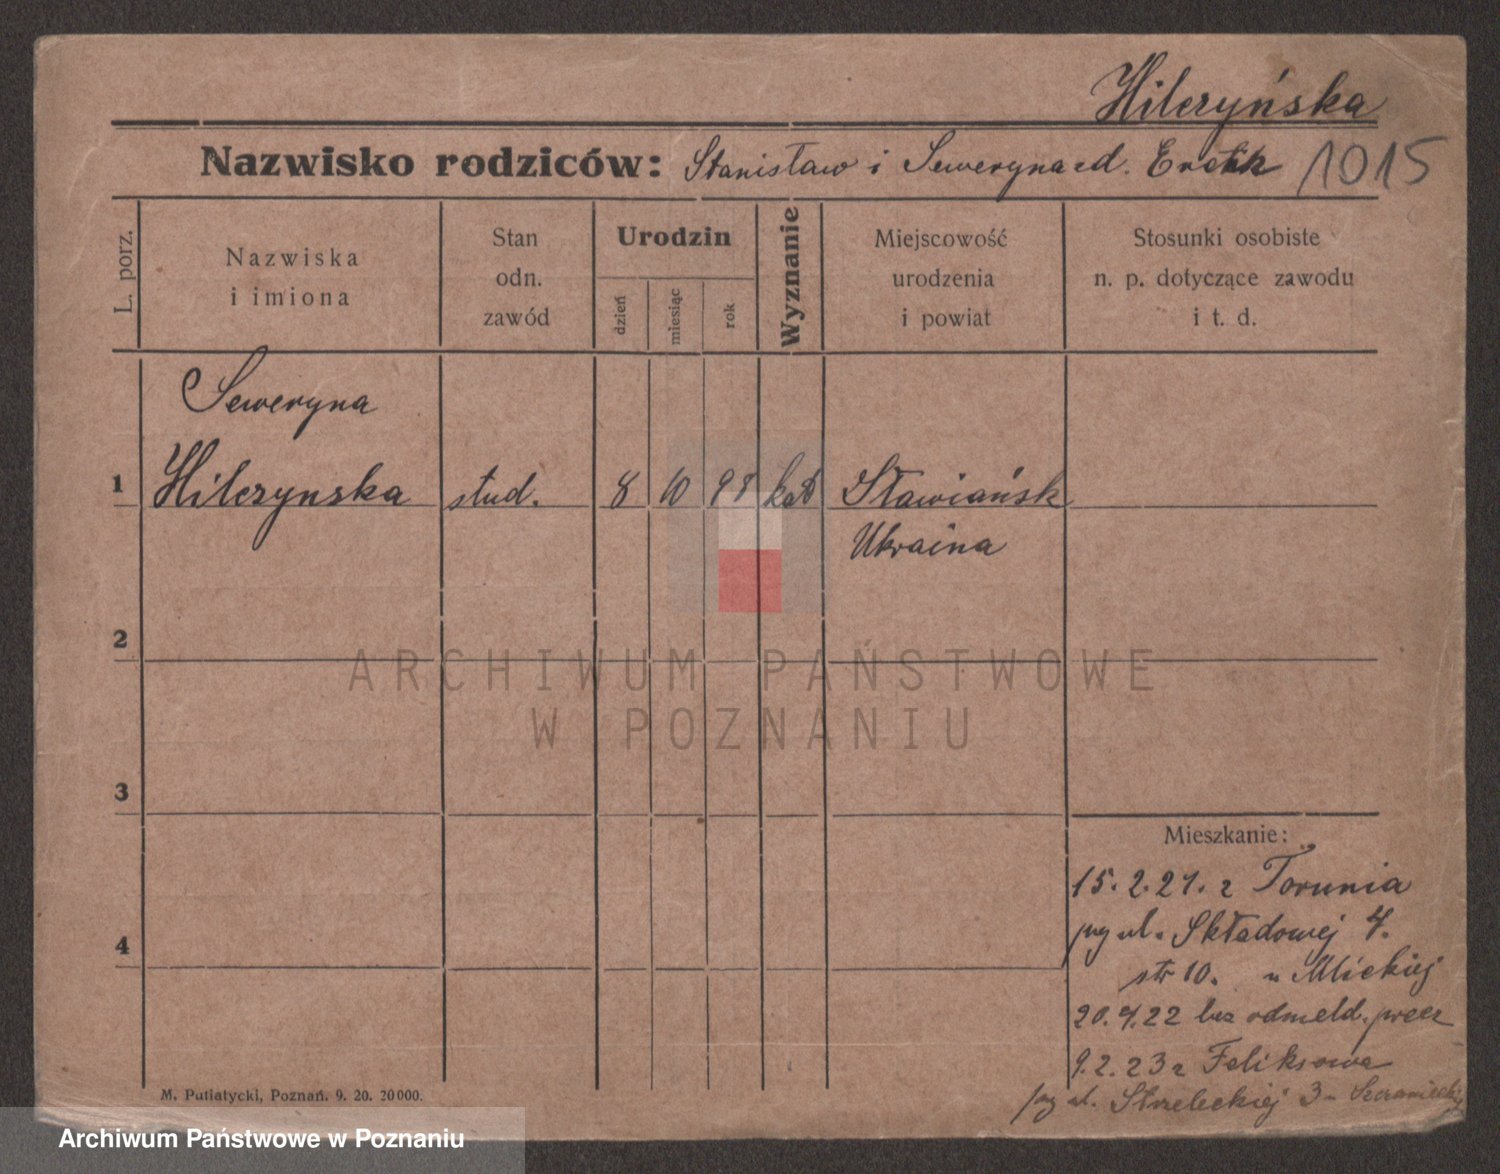 Hilczyńska
Nazwisko rodziców: Stanisław i Seweryna z d. 1015
L. porz.
Nazwiska
i imiona
Stan
odn.
zawód
Urodzin
dzień
miesiąc
rok
Wyznanie
Miejscowość
urodzenia
i powiat
Stosunki osobiste
n. p. dotyczące zawodu
i t. d.
Seweryna
1 Hilczynska stud. 8 10 98 kat Sławiańsk
Ukraina
2
ARCHIWUM PAŃSTWOWE
W POZNANIU
3
Mieszkanie:
15. 2. 21. z Torunia
4 ul. Składowej 4.
str 10. u Mlickiej
20. 4. 22 bez odmeld. precz
9. 2. 23 z Feliksowa
ul. Strzeleckiej 3 u
M. Putiatycki, Poznań. 9. 20. 20000.
Archiwum Państwowe w Poznaniu